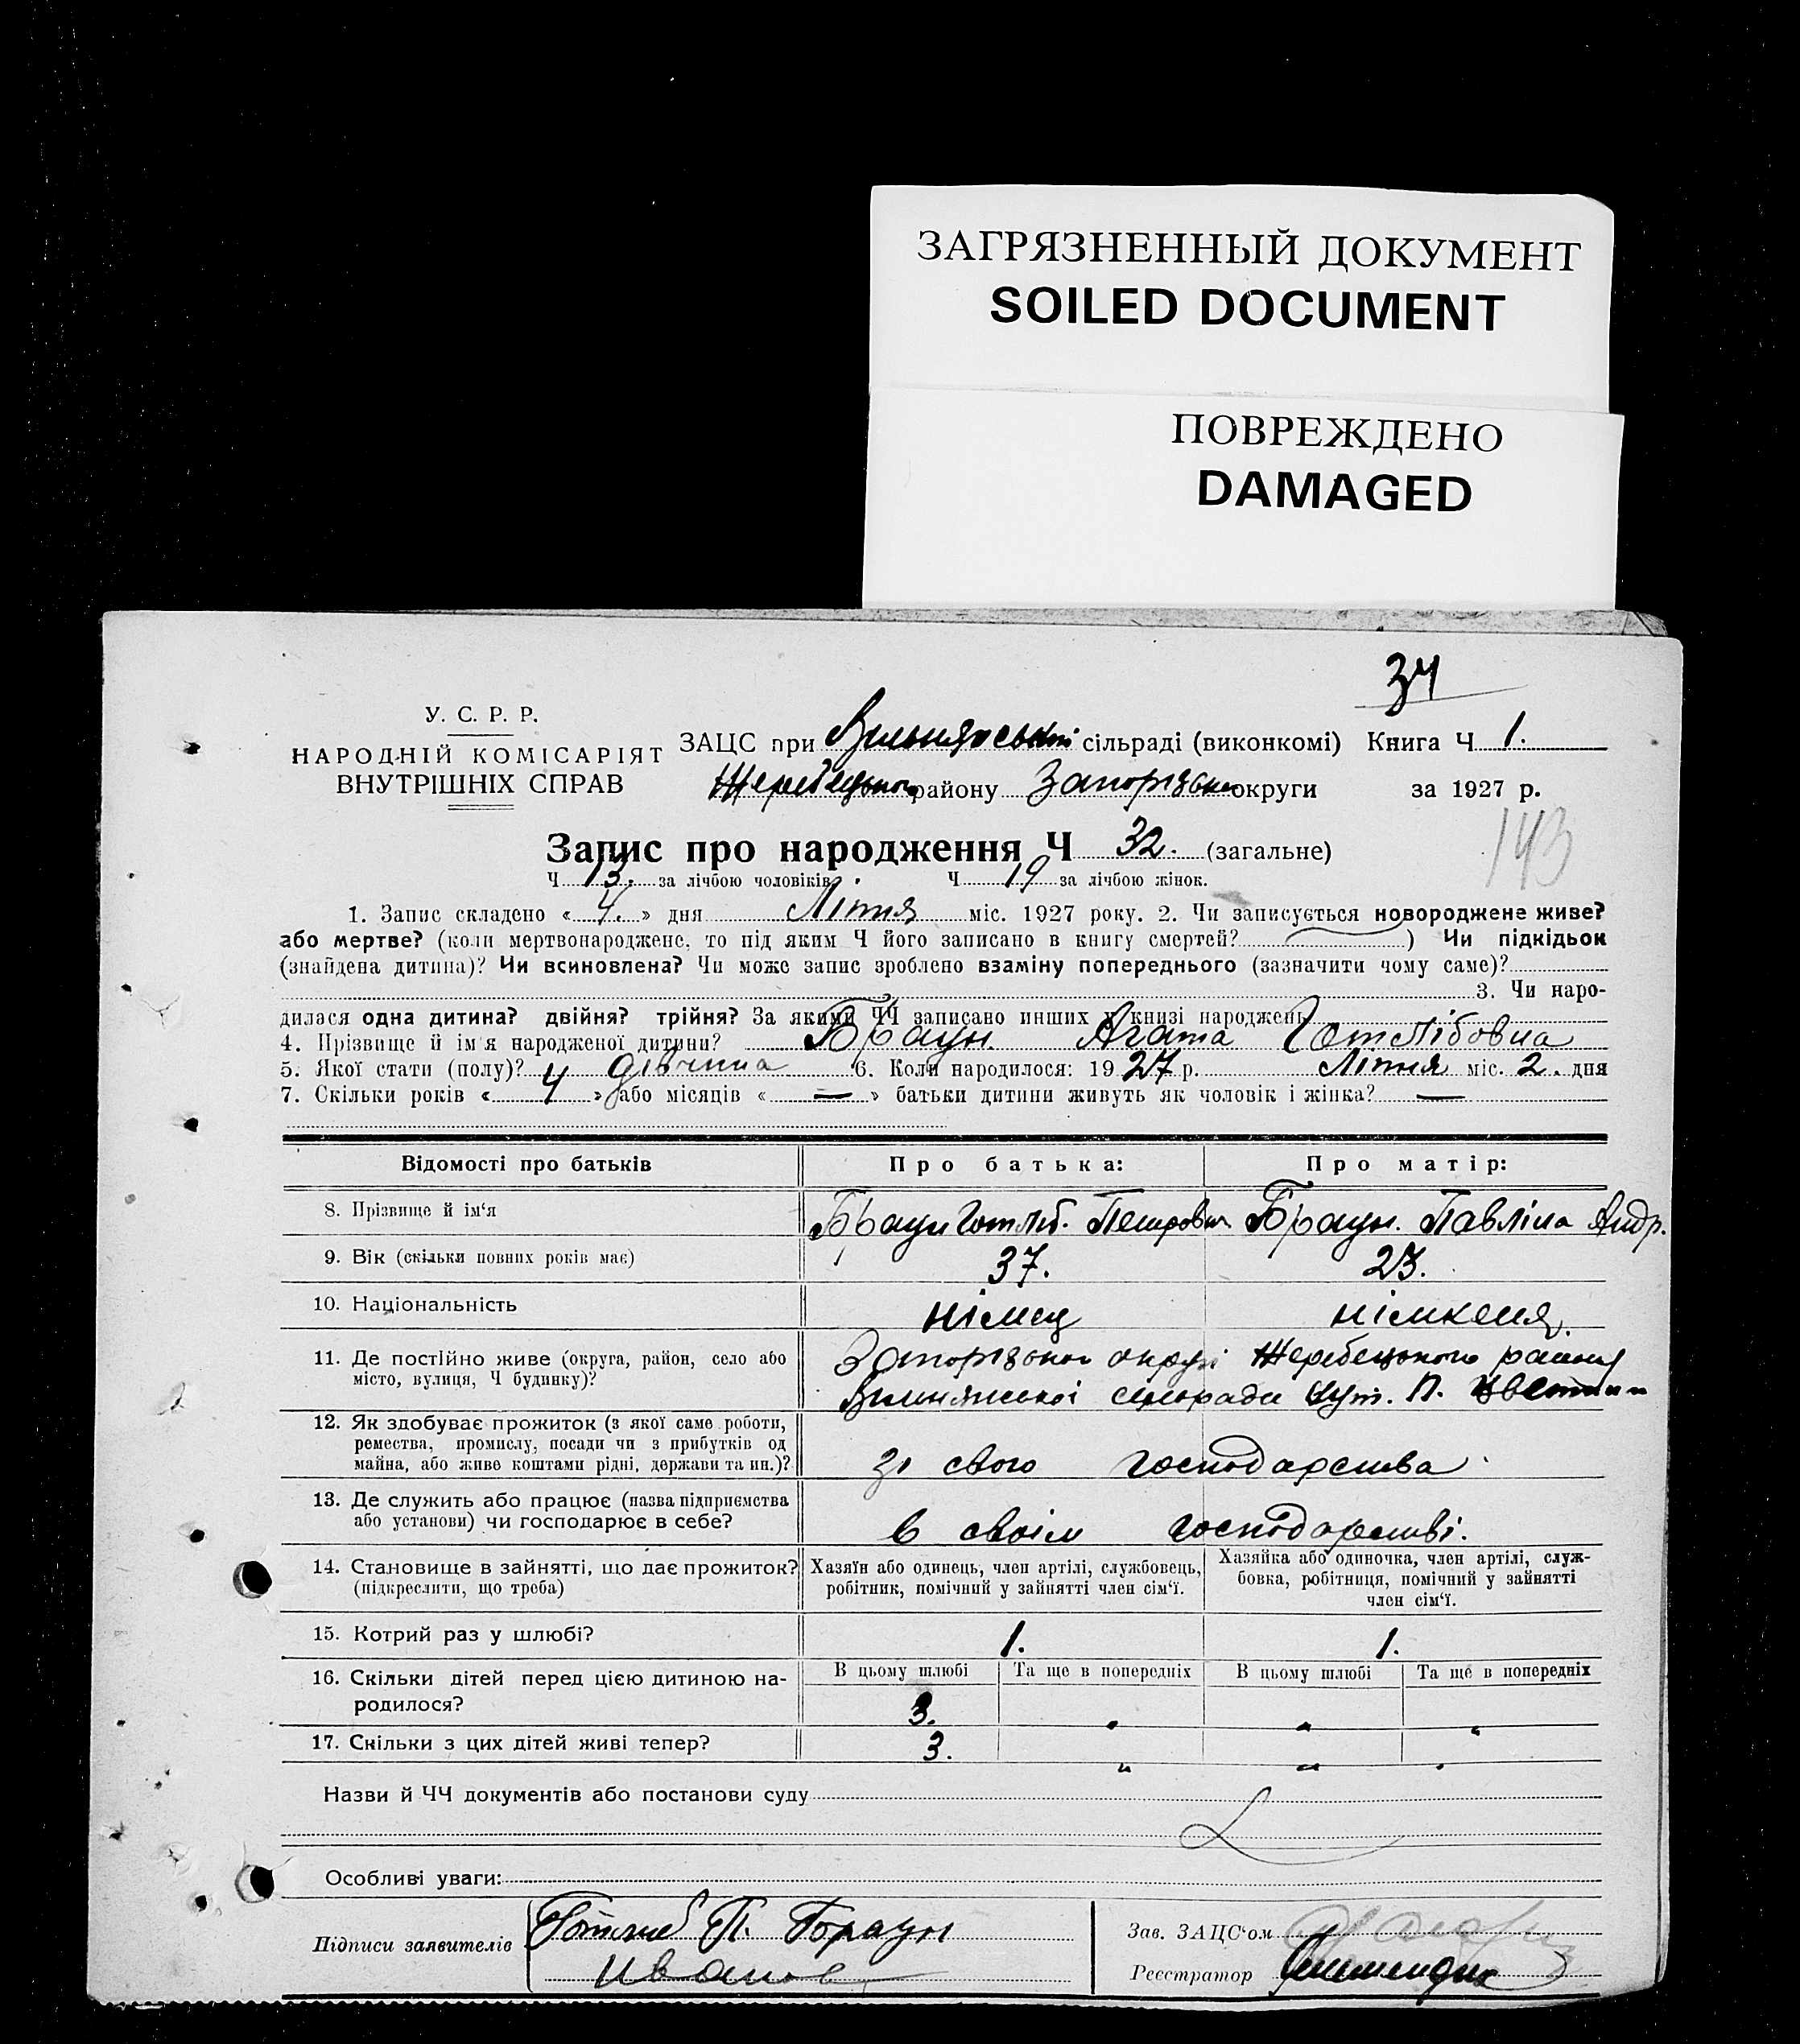 ЗАГРЯЗНЕННЫЙ ДОКУМЕНТ
SOILED DOCUMENT
ПОВРЕЖДЕНО
DAMAGED
34
У. С. Р. Р.
НАРОДНІЙ КОМІСАРІЯТ
ВНУТРІШНІХ СПРАВ
ЗАЦС при сільраді (виконкомі) Книга Ч 1.
Жеребецького району Запорізької округи за 1927 р.
143
Запис про народження Ч 32. (загальне)
Ч 13. за лічбою чоловіків. Ч 19 за лічбою жінок.
1. Запис складено « 4. » дня Літня міс. 1927 року. 2. Чи записується новороджене живе?
або мертве? (коли мертвонароджене, то під яким Ч його записано в книгу смертей? ) Чи підкідьок
(знайдена дитина)? Чи всиновлена? Чи може запис зроблено взаміну попереднього (зазначити чому саме)?
3. Чи наро-
дилася одна дитина? двійня? трійня? За якими ЧЧ записано инших у книзі народжень
4. Прізвище й ім'я народженої дитини? Браун Агата Готлібовна
5. Якої стати (полу)? дівчина 6. Коли народилося: 1927 р. Літня міс. 2. дня
7. Скільки років « 4 » або місяців « — » батьки дитини живуть як чоловік і жінка? —
Відомості про батьків Про батька: Про матір:
8. Прізвище й ім'я Браун Готліб. Петрович Браун. Павліна Андр.
9. Вік (скільки повних років має) 37. 23.
10. Національність німец німкеня.
11. Де постійно живе (округа, район, село або
місто, вулиця, Ч будинку)?
Запорізької округі Жеребецького району
сільради хут.
12. Як здобуває прожиток (з якої саме роботи,
ремества, промислу, посади чи з прибутків од
майна, або живе коштами рідні, держави та ин.)?
зі свого господарства.
13. Де служить або працює (назва підприємства
або установи) чи господарює в себе?
в своім господарстві.
14. Становище в зайнятті, що дає прожиток?
(підкреслити, що треба)
Хазяїн або одинець, член артілі, службовець,
робітник, помічний у зайнятті член сім'ї.
Хазяйка або одиночка, член артілі, служ-
бовка, робітниця, помічний у зайнятті
член сім'ї.
15. Котрий раз у шлюбі? 1. 1.
16. Скільки дітей перед цією дитиною на-
родилося?
В цьому шлюбі Та ще в попередніх В цьому шлюбі Та ще в попередніх
3.
17. Скільки з цих дітей живі тепер? 3. " "
Назви й ЧЧ документів або постанови суду
Особливі уваги:
Підписи заявителів Готлиб П. Браун
Зав. ЗАЦС'ом
Реєстратор